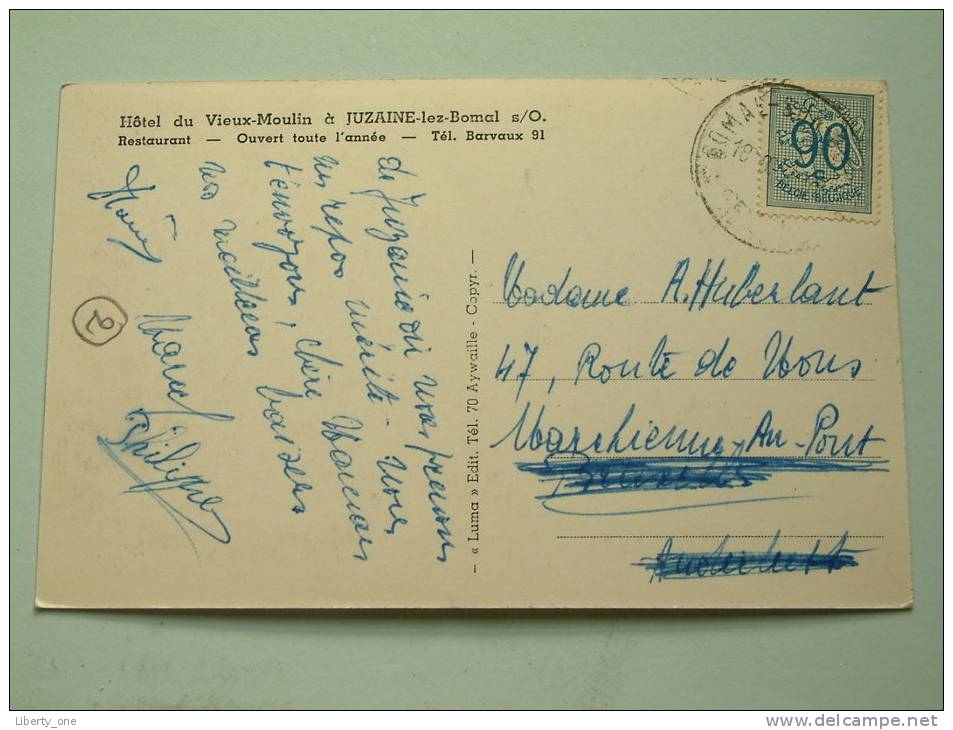 Hôtel du Vieux-Moulin à JUZAINE-lez-Bomal s/O.
Restaurant — Ouvert toute l'année — Tél. Barvaux 91
90
c
BELGIE-BELGIQUE
BOMAL
- « Luma » Edit. Tél. 70 Aywaille - Copyr. -
Madame A. Huberlant
47, Route de Mons
Marchienne-Au-Pont
de Juzaine où nous prenons
un repos mérité - nous
t'envoyons, chère Maman
nos meilleurs baisers
Marcel
Philippe
2
Liberty_one
www.delcampe.net